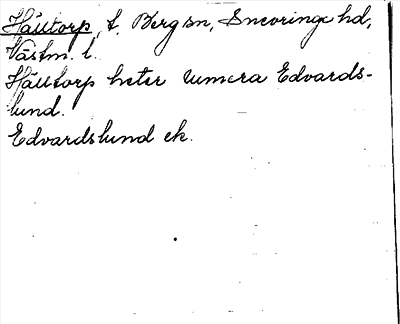 Hälltorp, t. Berg sn, Snevringe hd,
Västm. l.
Hälltorp heter numera Edvards-
lund.
Edvardslund ek.